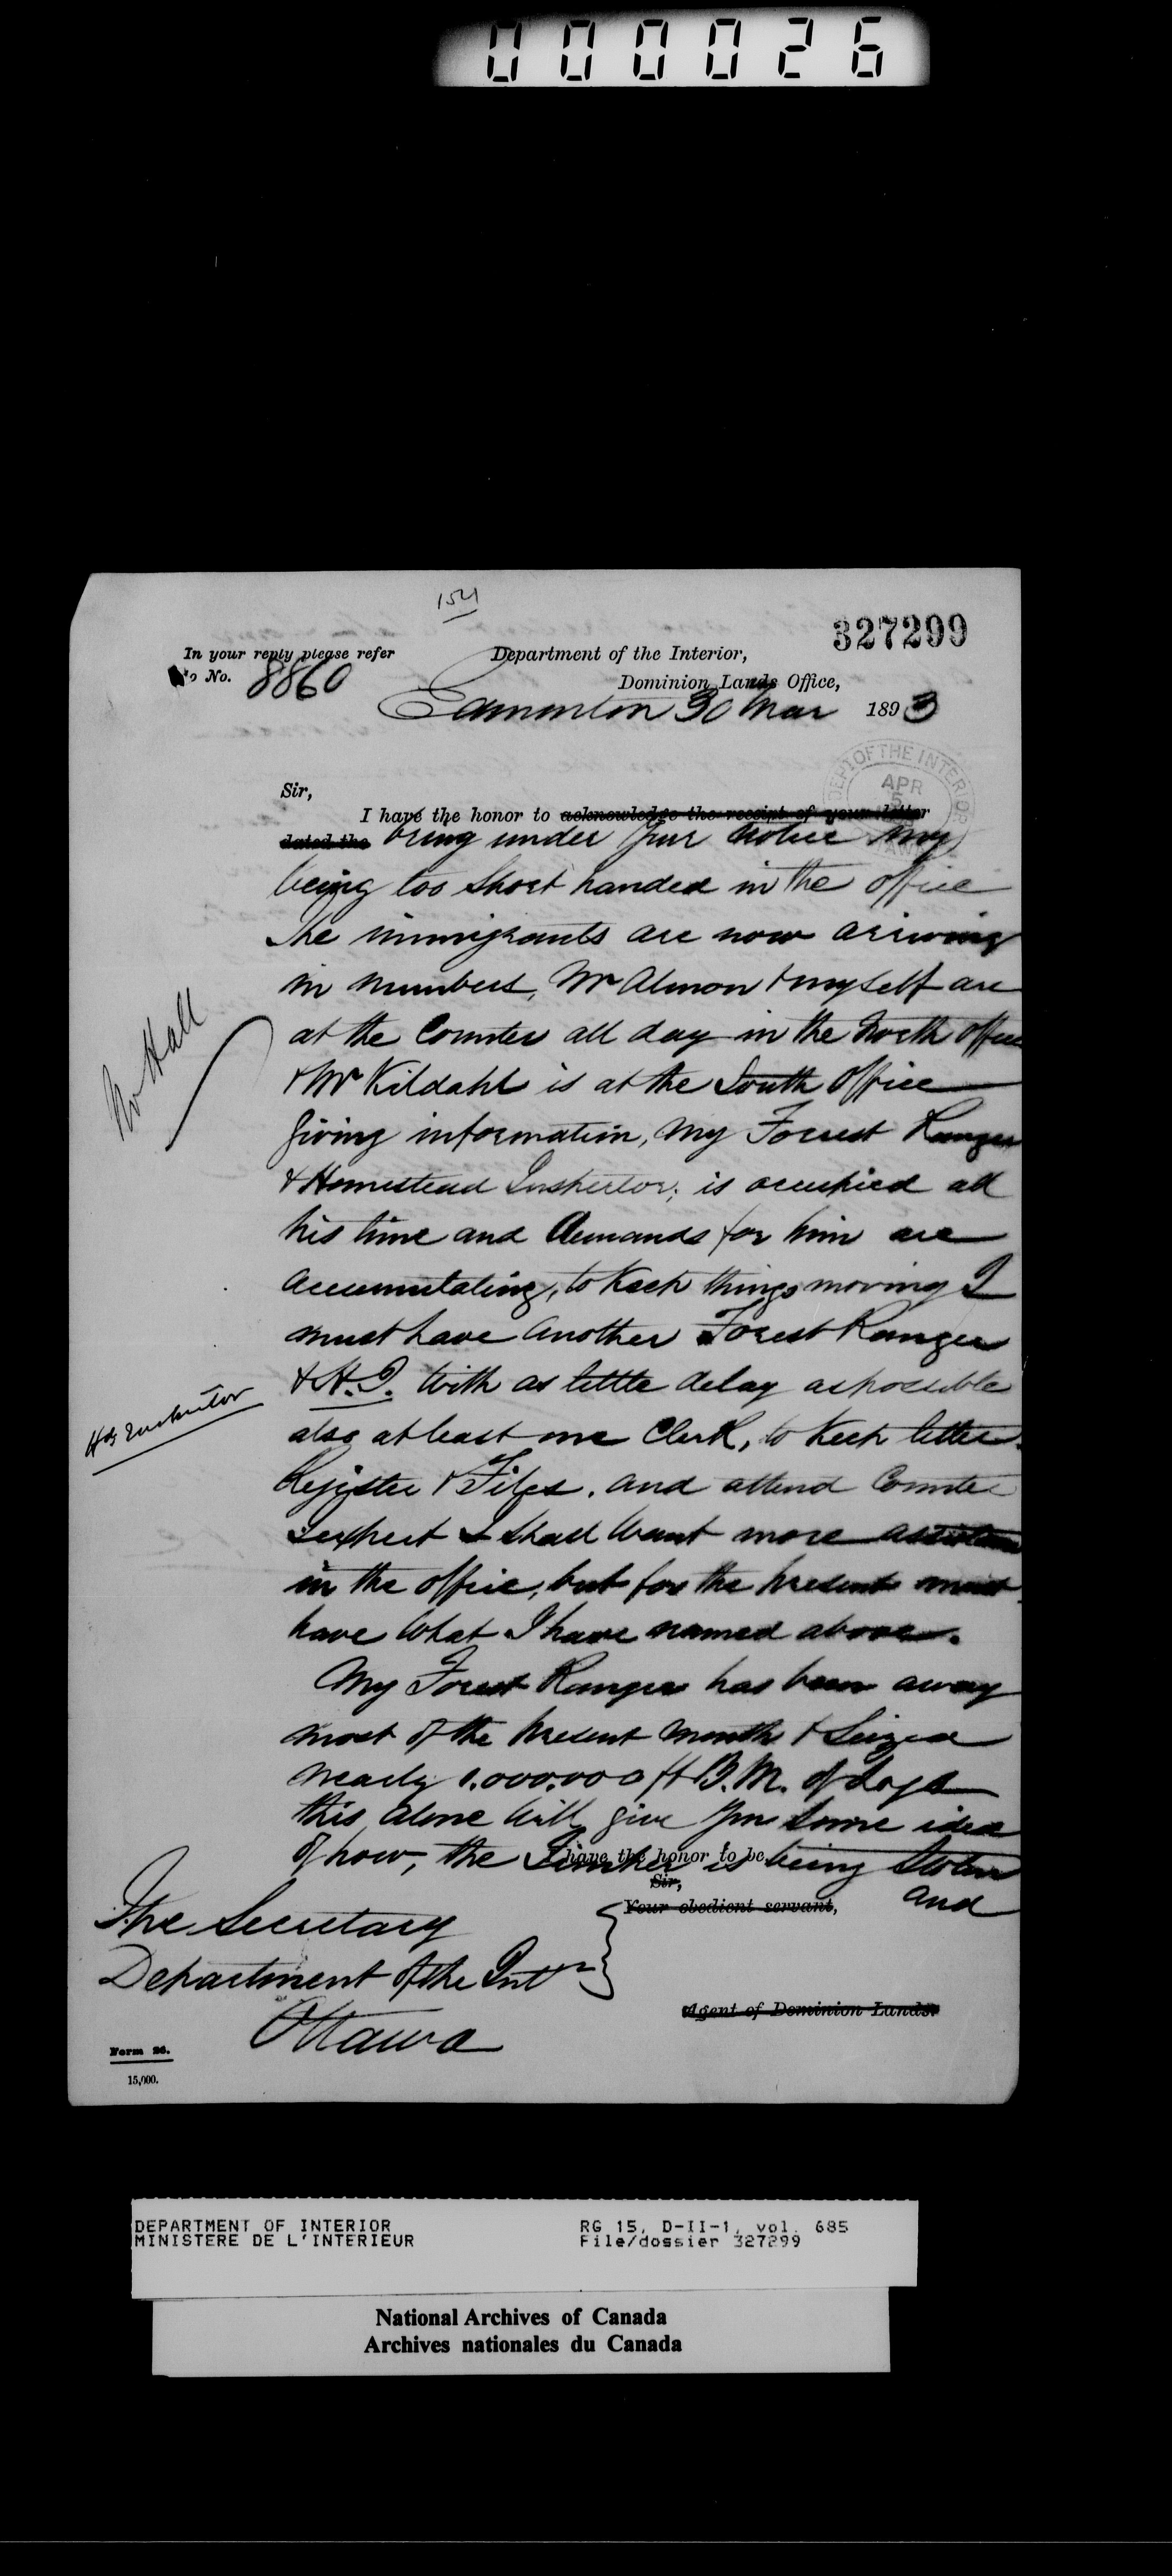 000026
154
327299
In your reply please refer
to No. 8860
Department of the Interior,
Dominion Lands Office,
Edmonton 30 Mar 1893
DEPT OF THE INTERIOR
APR
5
Sir,
I have the honor to acknowledge the receipt of your letter
dated the bring under your notice my
being too short handed in the office
The immigrants are now arriving
in numbers, Mr Almon & myself are
at the Counter all day in the North office
& Mr Kildahl is at the South Office
giving information, my Forest Ranger
& Homestead Inspector, is occupied all
his time and demands for him are
accumulating, to keep things moving I
must have another Forest Ranger
& H.I. with as little delay as possible
also at least one Clerk, to keep letter
Register & Files. and attend Counter
I expect I shall want more assistance
in the office, but for the present must
have what I have named above.
My Forest Ranger has been away
most of the present month & seized
nearly 1.000.000 ft B.M. of Logs
this alone will give you some idea
of how, the Timber is being stolen
and
I have the honor to be,
Sir,
Your obedient servant,
Agent of Dominion Lands.
Mr Hall
Hd Inspector
The Secretary
Department of the Intr
Ottawa
Form 26.
15,000.
DEPARTMENT OF INTERIOR
MINISTERE DE L'INTERIEUR
RG 15, D-II-1, vol. 685
File/dossier 327299
National Archives of Canada
Archives nationales du Canada